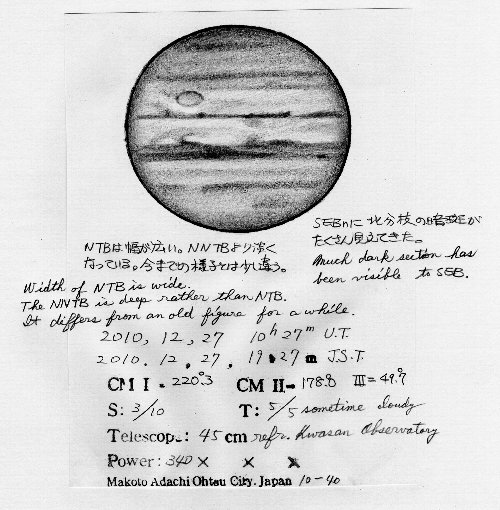 SEBnに北分枝の暗斑が
たくさん見えてきた。
Much dark section has
been visible to SEB.
NTBは幅が広い。NNTBより淡く
なっている。今までの様子とは少し違う。
Width of NTB is wide.
The NNTB is deep rather than NTB.
It differs from an old figure for a while.
2010, 12, 27 10h 27m U.T.
2010. 12. 27, 19. 27m J.S.T.
CM I = 220°.3 CM II = 178.8 III = 49.°9
S: 3/10 T: 5/5 sometime cloudy
Telescop.: 45 cm refr. Kwasan Observatory
Power: 340 × × ×
Makoto Adachi Ohtsu City. Japan 10-40